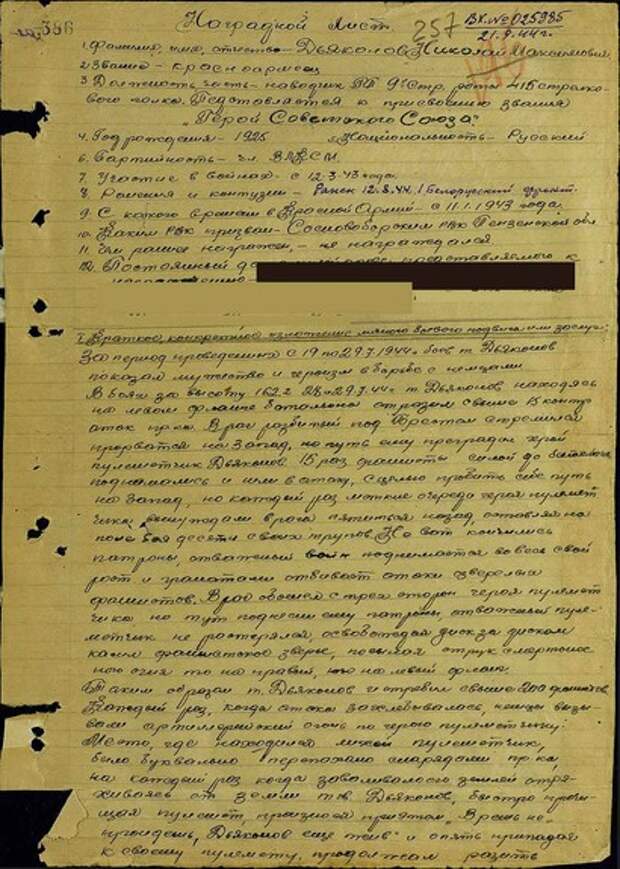 386
Наградной Лист.
257
Вх.№025985
21.9.44г.
1. Фамилия, имя, отчество - Дьяконов Николай Максимович
2. Звание - красноармеец
3. Должность, часть - наводчик РП 9 Стр. роты 415 стрелко-
вого полка. Представляется к присвоению звания
"Герой Советского Союза".
4. Год рождения - 1925 Национальность - Русский
6. Партийность - чл. ВЛКСМ.
7. Участие в войнах - с 12.3.43 года.
8. Ранения и контузии - Ранен 12.8.44. 1 Белорусский фронт.
9. С какого времени в Красной Армии - с 11.1.1943 года.
10. Каким РВК призван - Сосновоборским РВК Пензенской обл.
11. Чем ранее награжден, - не награждался
12. Постоянный представляемого к
I. Краткое, конкретное изложение личного боевого подвига или заслуг:
За период проведенных с 19 по 29.7.1944г боев т. Дьяконов
показал мужество и героизм в борьбе с немцами.
В боях за высоту 162.2 28-29.7.44г. т. Дьяконов, находясь
на левом фланге батальона отразил свыше 15 контр
атак пр-ка. Враг разбитый под Брестом стремился
прорватся на Запад, но путь ему преградил герой
пулеметчик Дьяконов. 15 раз фашисты силой до батальона
поднимались и шли в атаку, с целью пробить себе путь
на Запад, но каждый раз меткие очереди героя пулемет
чика вынуждали врага пятиться назад, оставляя на
поле боя десятки своих трупов. Но вот кончились
патроны, отважный воин поднимается во весь свой
рост и гранатами отбивает атаки зверелых
фашистов. Враг обошел с трех сторон героя пулемет
чика но тут поднесли ему патроны, отважный пуле-
метчик не растерялся, освобождая диск за диском
косил фашистское зверье, посылая струи смертонос
ного огня то на правый, то на левый фланг.
Таким образом т. Дьяконов истребил свыше 200 фашистов.
Каждый раз, когда атака захлебывалась, немцы вызы-
вали артиллерийский огонь по герою пулеметчику.
Место, где находился лихой пулеметчик,
было буквально перепахано снарядами пр-ка,
но каждый раз когда заваливалося землей отря-
хиваясь от земли тов. Дьяконов, быстро прочи-
щая пулемет, произнося при этом "Врешь не-
пройдешь, Дьяконов еще жив" и опять припадая
к своему пулемету, продолжал разить